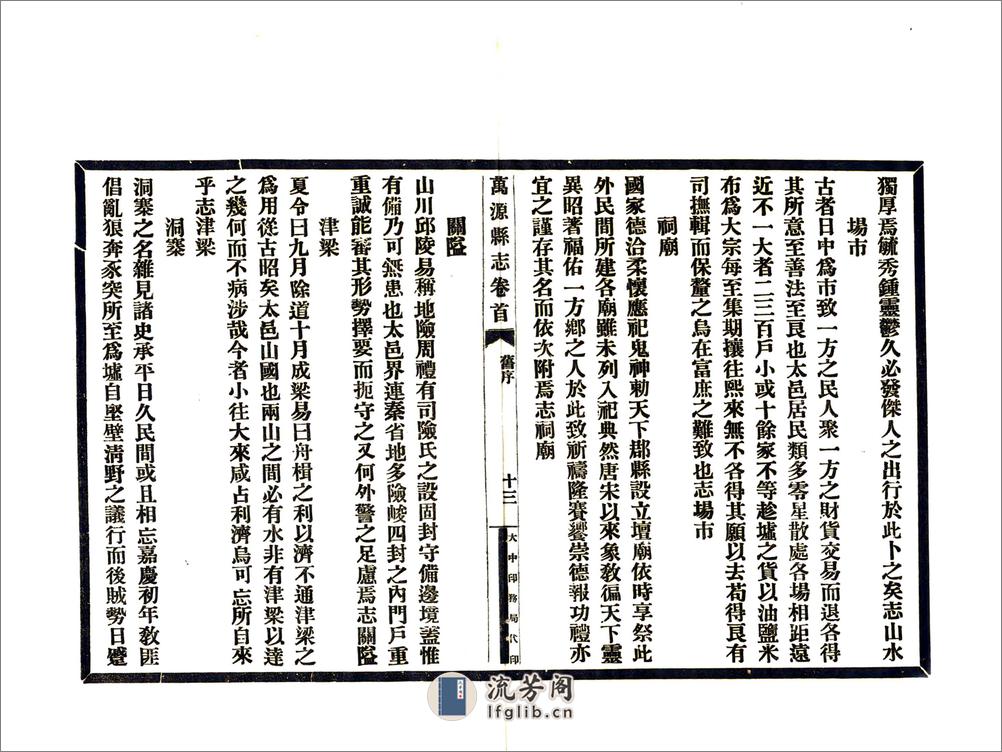 獨厚焉毓秀鍾靈鬱久必發傑人之出行於此卜之矣志山水
場市
古者日中爲市致一方之民人聚一方之財貨交易而退各得
其所意至善法至良也太邑居民類多零星散處各場相距遠
近不一大者二三百戶小或十餘家不等趁墟之貨以油鹽米
布爲大宗每至集期攘往熙來無不各得其願以去苟得良有
司撫輯而保釐之烏在富庶之難致也志場市
祠廟
國家德洽柔懷應祀鬼神勅天下郡縣設立壇廟依時享祭此
外民間所建各廟雖未列入祀典然唐宋以來象敎徧天下靈
異昭著福佑一方鄉之人於此致祈禱隆賽饗崇德報功禮亦
宜之謹存其名而依次附焉志祠廟
萬源縣志卷首
舊序
十三
大中印務局代印
關隘
山川邱陵易稱地險周禮有司險氏之設固封守備邊境蓋惟
有備乃可無患也太邑界連秦省地多險峻四封之內門戶重
重誠能審其形勢擇要而扼守之又何外警之足慮焉志關隘
津梁
夏令曰九月除道十月成梁易曰舟楫之利以濟不通津梁之
爲用從古昭矣太邑山國也兩山之間必有水非有津梁以達
之幾何而不病涉哉今者小往大來咸占利濟烏可忘所自來
乎志津梁
洞寨
洞寨之名雜見諸史承平日久民間或且相忘嘉慶初年敎匪
倡亂狼奔豕突所至爲墟自堅壁清野之議行而後賊勢日蹙
流芳阁
lfglib.cn